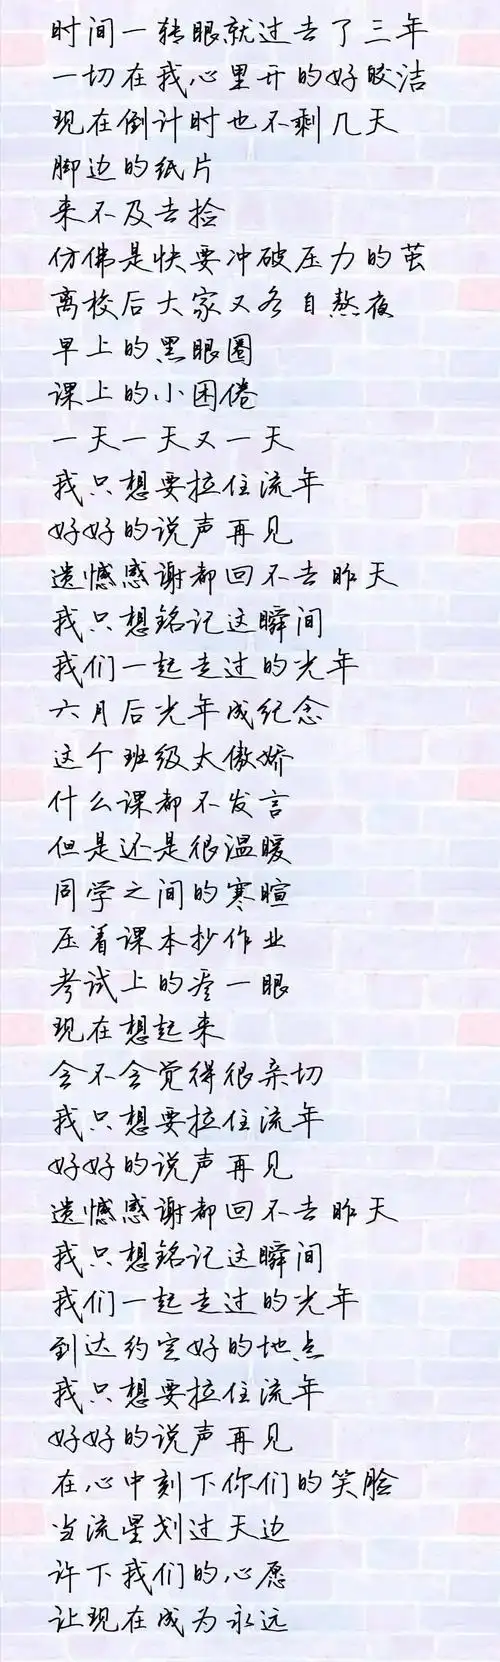 时间一转眼就过去了三年
一切在我心里开的好皎洁
现在倒计时也不剩几天
脚边的纸片
来不及去捡
仿佛是快要冲破压力的茧
离校后大家又各自熬夜
早上的黑眼圈
课上的小困倦
一天一天又一天
我只想要拉住流年
好好的说声再见
遗憾感谢都回不去昨天
我只想铭记这瞬间
我们一起走过的光年
六月后光年成纪念
这个班级太傲娇
什么课都不发言
但是还是很温暖
同学之间的寒暄
压着课本抄作业
考试上的瘪一眼
现在想起来
会不会觉得很亲切
我只想要拉住流年
好好的说声再见
遗憾感谢都回不去昨天
我只想铭记这瞬间
我们一起走过的光年
到达约定好的地点
我只想要拉住流年
好好的说声再见
在心中刻下你们的笑脸
当流星划过天边
许下我们的心愿
让现在成为永远